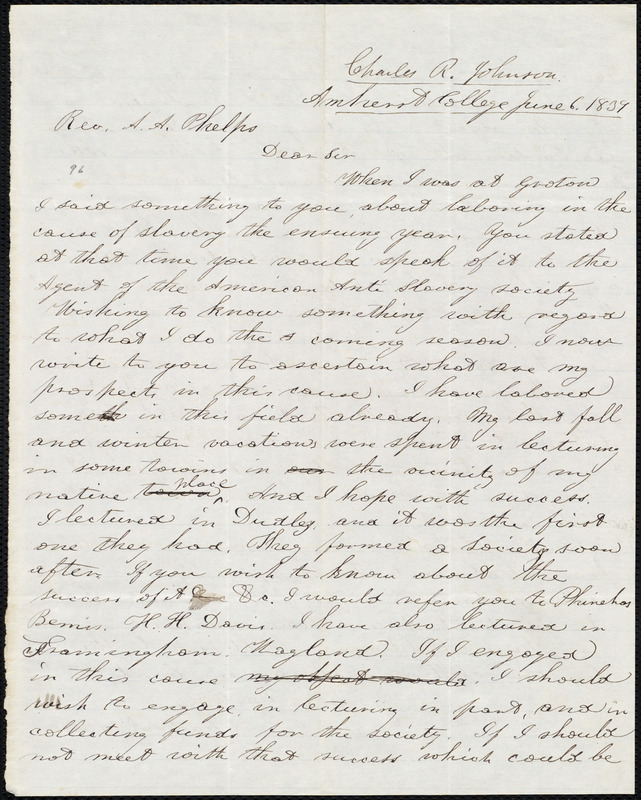 Charles R. Johnson.
Amherst College June 6. 1839
Rev. A. A. Phelps
Dear Sir
96
When I was at Groton
I said something to you about laboring in the
cause of slavery the ensuing year. You stated
at that time you would speak of it to the
Agent of the American Anti Slavery society
Wishing to know something with regard
to what I do the coming season. I now
write to you to ascertain what are my
prospects in this cause. I have labored
some in this field already. My last fall
and winter vacations were spent in lecturing
in some towns in our the vicinity of my
native town place. And I hope with success.
I lectured in Dudley, and it was the first
one they had. They formed a Society soon
after. If you wish to know about the
success of it &c. I would refer you to Phinehas
Bemis. H. H. Davis. I have also lectured in
Framingham. Wayland. If I engaged
in this cause my effort would. I should
wish to engage in lecturing in part, and in
collecting funds for the society. If I should
not meet with that success which could be